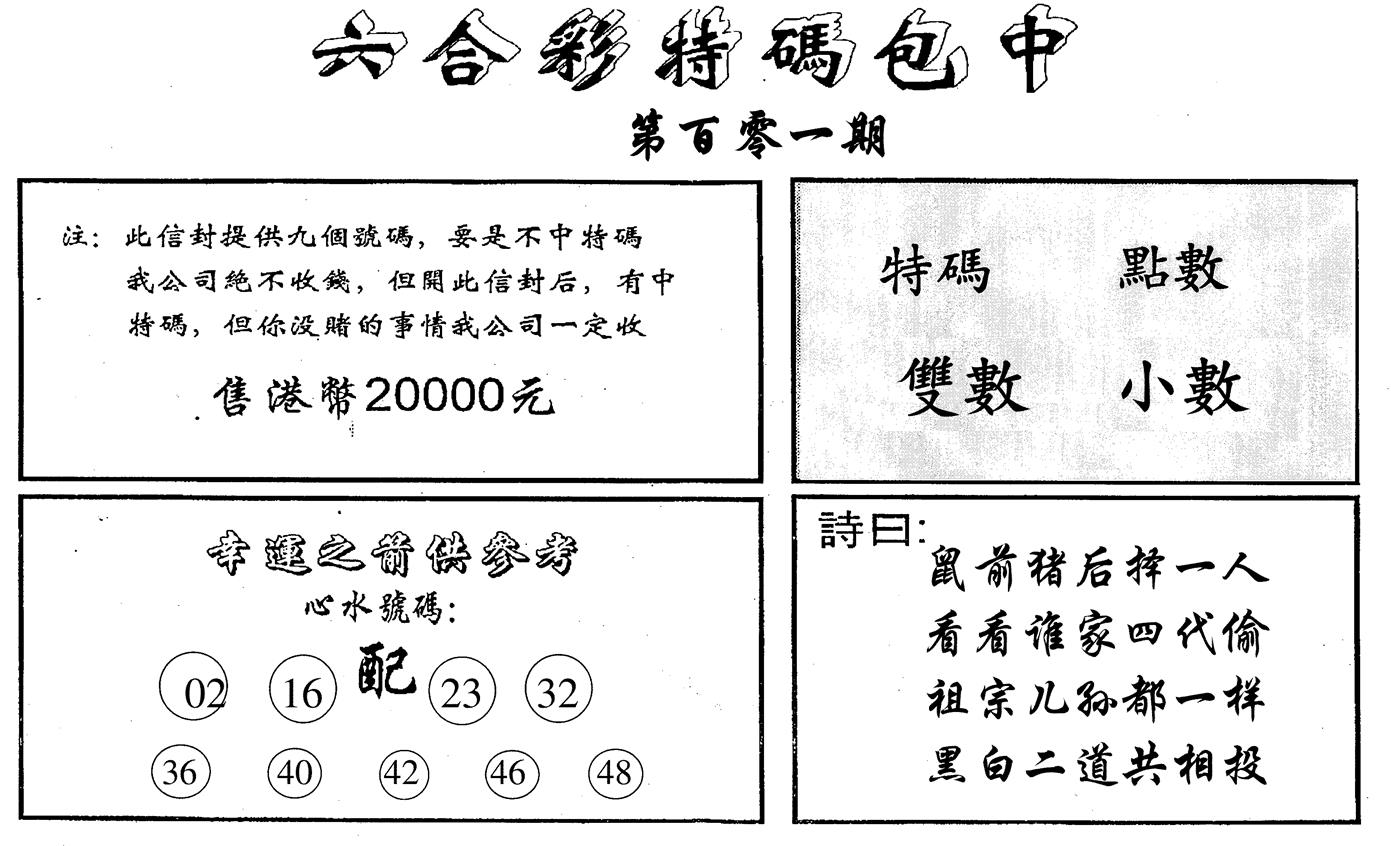 六合彩特碼包中
第百零一期
注：此信封提供九個號碼，要是不中特碼
我公司絶不收錢，但開此信封后，有中
特碼，但你没賭的事情我公司一定收
售港幣20000元
特碼 點數
雙數 小數
幸運之箭供參考
心水號碼：
02 16 配 23 32
36 40 42 46 48
詩曰：
鼠前猪后择一人
看看谁家四代偷
祖宗儿孙都一样
黑白二道共相投